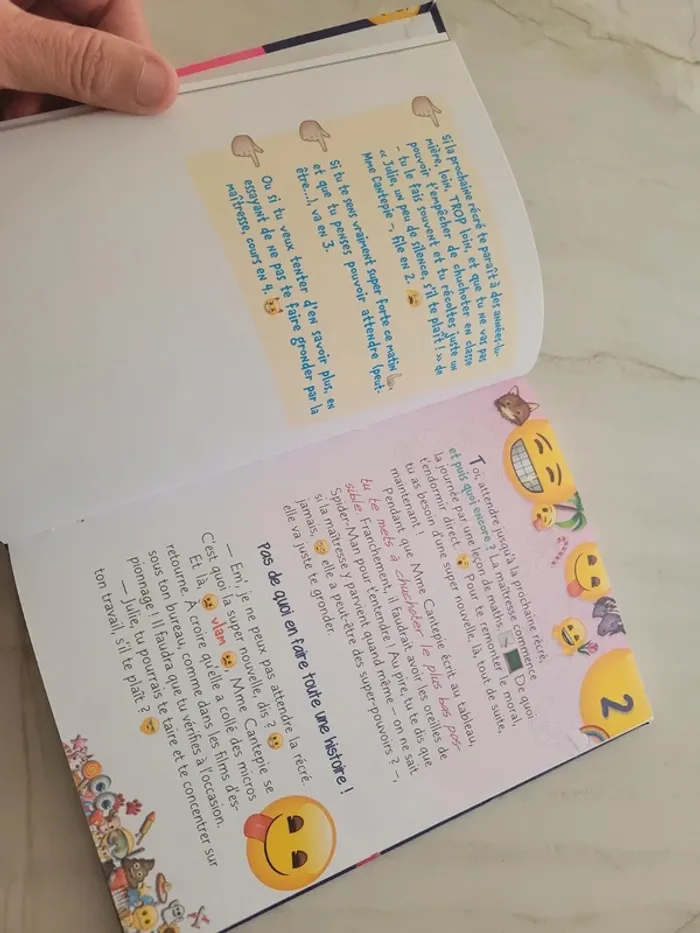 Si la prochaine récré te paraît à des années-lu-
mière, loin, TROP loin, et que tu ne vas pas
pouvoir t'empêcher de chuchoter en classe
– tu le fais souvent et tu récoltes juste un
« Julie, un peu de silence, s'il te plaît ! » de
Mme Cantepie –, file en 2.
Si tu te sens vraiment super forte ce matin
et que tu penses pouvoir attendre (peut-
être...), va en 3.
Ou si tu veux tenter d'en savoir plus, en
essayant de ne pas te faire gronder par la
maîtresse, cours en 4.
2
Toi, attendre jusqu'à la prochaine récré,
et puis quoi encore ? La maîtresse commence
la journée par une leçon de maths. De quoi
t'endormir direct. Pour te remonter le moral,
tu as besoin d'une super nouvelle, là, tout de suite,
maintenant !
Pendant que Mme Cantepie écrit au tableau,
tu te mets à chuchoter le plus bas pos-
sible. Franchement, il faudrait avoir les oreilles de
Spider-Man pour t'entendre ! Au pire, tu te dis que
si la maîtresse y parvient quand même – on ne sait
jamais, elle a peut-être des super-pouvoirs ? –,
elle va juste te gronder.
Pas de quoi en faire toute une histoire !
— Em, je ne peux pas attendre la récré.
C'est quoi, la super nouvelle, dis ?
Et là, vlam, Mme Cantepie se
retourne. À croire qu'elle a collé des micros
sous ton bureau, comme dans les films d'es-
pionnage ! Il faudra que tu vérifies à l'occasion.
— Julie, tu pourrais te taire et te concentrer sur
ton travail, s'il te plaît ?